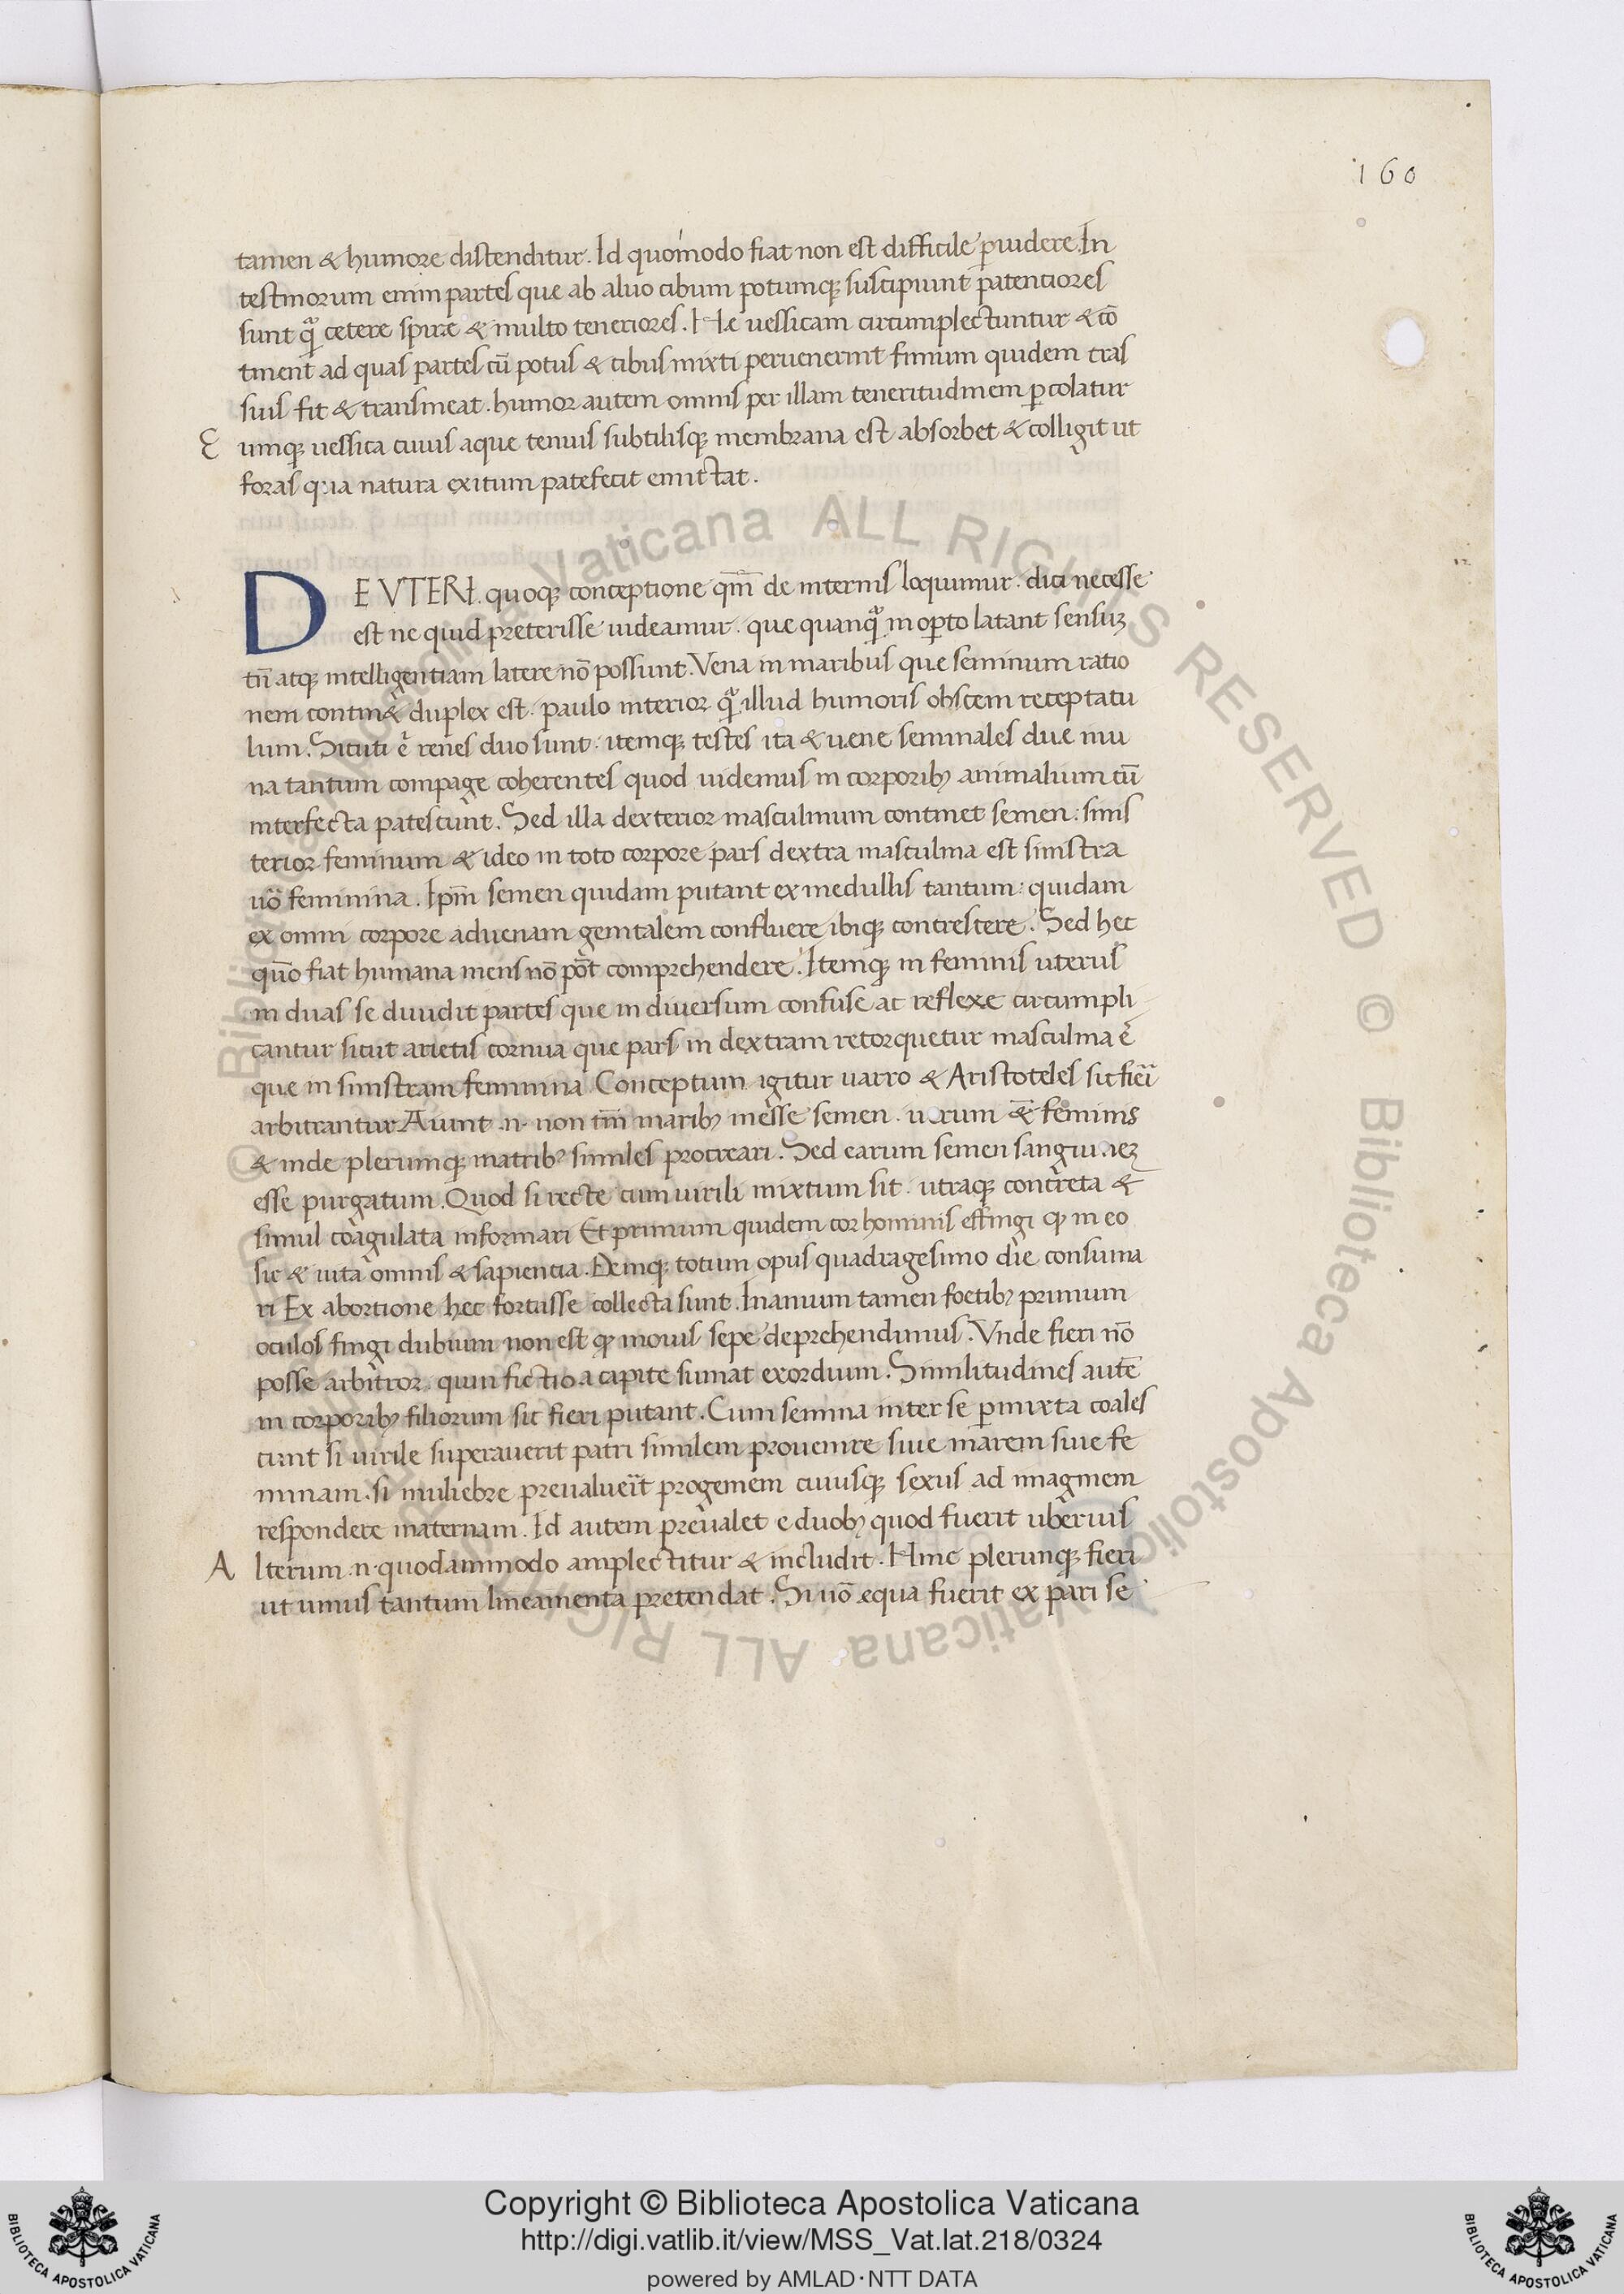 160
tamen & humore distenditur. Id quomodo fiat non est difficile ꝑuidere. In
testinorum enim partes que ab aluo cibum potumq; suscipiunt patentiores
sunt qᷓ cetere spire & multo teneriores. He uessicam circumplectuntur & cō
tinent ad quas partes cū potus & cibus mixti peruenerint fimum quidem cras
suis fit & transmeat. humor autem omnis per illam teneritudinem ꝑcolatur
E umq; uessica cuius aque tenuis subtilisq; membrana est absorbet & colligit ut
foras qua natura exitum patefecit emittat.
DE VTERI. quoq; conceptione qm̄ de internis loquimur. dici necesse
est ne quid preterisse uideamur. que quanqᷓ in oꝑto latant sensuꝫ
tn̄ atq; intelligentiam latere nō possunt. Vena in maribus que seminum ratio
nem contin& duplex est. paulo interior qᷓ illud humoris obsceni receptatu
lum. Sicuti ē renes duo sunt. itemq; testes ita & uene seminales due inu
na tantum compage coherentes quod uidemus in corporibꝰ animalium cū
interfecta patescunt. Sed illa dexterior masculinum continet semen: sinis
terior feminum & ideo in toto corpore pars dextra masculina est sinistra
uō feminina. Ipm̄ semen quidam putant ex medullis tantum: quidam
ex omni corpore aduenam genitalem confluere ibiq; concrescere. Sed hec
quō fiat humana mens nō pōt comprehendere. Itemq; in feminis uterus
in duas se diuidit partes que in diuersum confuse ac reflexe circumpli
cantur sicut arietis cornua que pars in dextram retorquetur masculina ē
que in sinistram feminina Conceptum igitur uarro & Aristoteles sic fieri
arbitrantur Aiunt .n. non tm̄ maribꝰ inesse semen. uerum &̄ feminis
& inde plerumq; matribꝰ similes procreari. Sed earum semen sanguineꝫ
esse purgatum. Quod si recte cum uirili mixtum sit. utraq; concreta &
simul coagulata informari Et primum quidem cor hominis effingi ꝙ in eo
sit & uita omnis & sapientia. Deniq; totum opus quadragesimo die consuma
ri Ex abortione hec fortasse collecta sunt. In auium tamen foetibꝰ primum
oculos fingi dubium non est ꝙ in ouis sepe deprehendimus. Vnde fieri nō
posse arbitror. quin fictio a capite sumat exordium. Similitudines autē
in corporibꝰ filiorum sic fieri putant. Cum semina inter se ꝑmixta coales
cunt si uirile superauerit patri similem prouenire siue marem siue fe
minam. si muliebre preualuerit progeniem cuiusq; sexus ad imaginem
respondere maternam. Id autem preualet e duobꝰ quod fuerit uberius
A lterum .n. quodammodo amplectitur & includit. Hinc plerunq; fieri
ut unius tantum lineamenta pretendat. Si uō equa fuerit ex pari se
© Biblioteca Apostolica Vaticana ALL RIGHTS RESERVED © Biblioteca Apostolica Vaticana ALL RIGHTS RESERVED
Copyright © Biblioteca Apostolica Vaticana
http://digi.vatlib.it/view/MSS_Vat.lat.218/0324
powered by AMLAD·NTT DATA
BIBLIOTECA APOSTOLICA VATICANA
BIBLIOTECA APOSTOLICA VATICANA